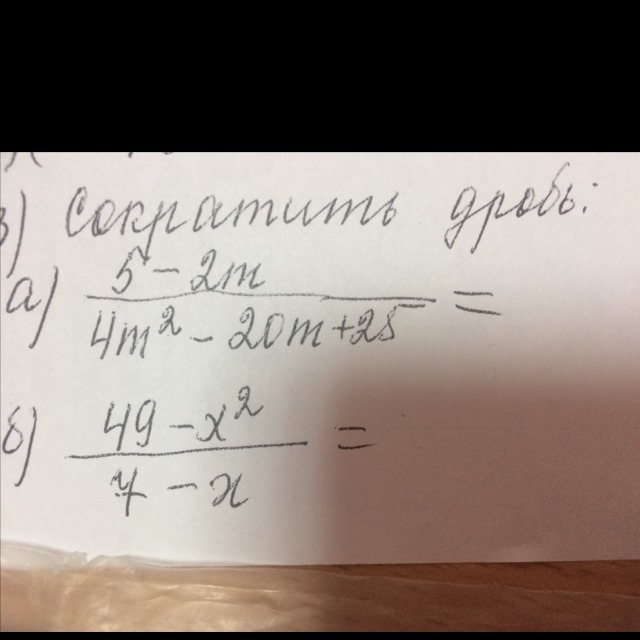 в) Сократить дробь:
а) (5 - 2m)/(4m² - 20m + 25) =
б) (49 - x²)/(7 - x) =